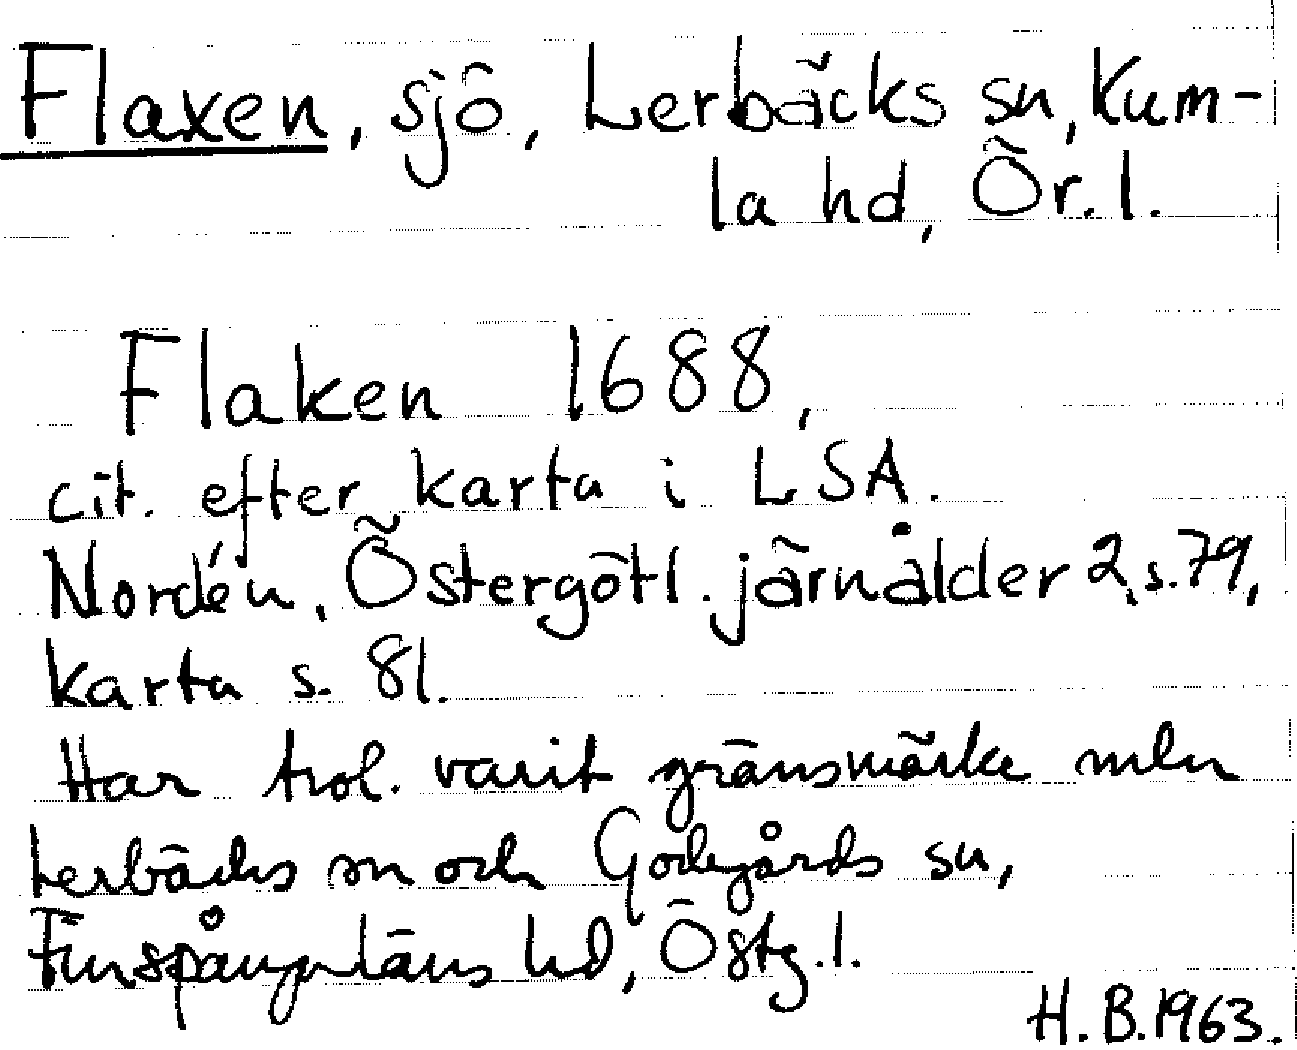 Flaxen, sjö, Lerbäcks sn, Kum-
la hd, Ör. l.
Flaken 1688,
cit. efter karta i LSA.
Nordén, Östergötl. järnålder 2, s. 79,
karta s. 81.
Har trol. varit gränsmärke mln
Lerbäcks sn och Godegårds sn,
Finspångaläns hd, Östg. l.
H.B. 1963.